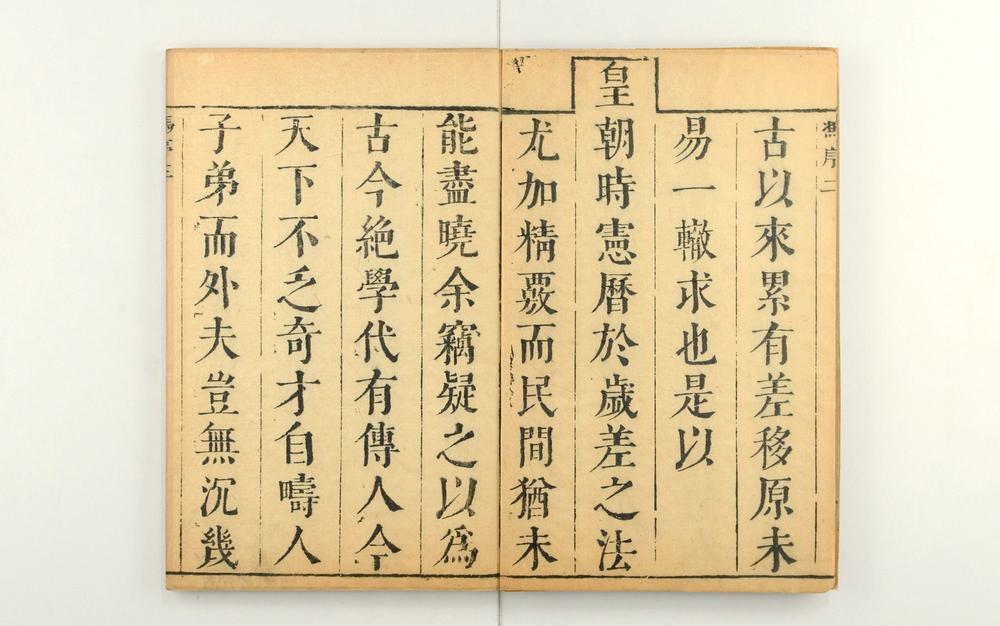 古以來累有差移原未
易一轍求也是以
皇朝時憲曆於歲差之法
尤加精覈而民間猶未
能盡曉余竊疑之以爲
古今絕學代有傳人今
天下不乏奇才自疇人
子弟而外夫豈無沉幾